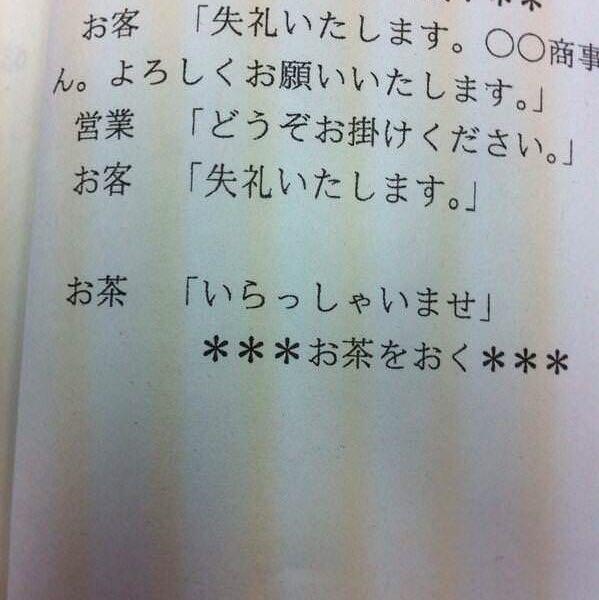 ＊＊
お客 「失礼いたします。〇〇商事
ん。よろしくお願いいたします。」
営業 「どうぞお掛けください。」
お客 「失礼いたします。」
お茶 「いらっしゃいませ」
＊＊＊お茶をおく＊＊＊